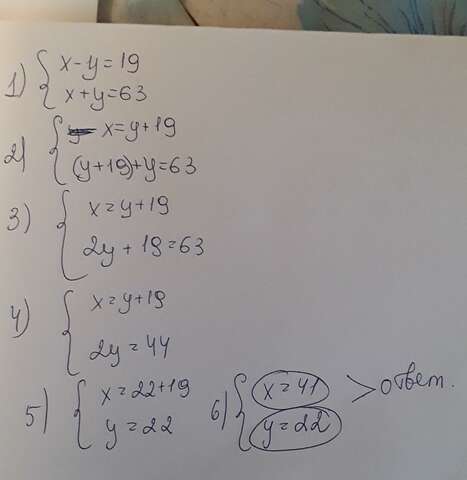 1) { x-y=19
x+y=63
2) { x=y+19
(y+19)+y=63
3) { x=y+19
2y+19=63
4) { x=y+19
2y=44
5) { x=22+19
y=22
6) { x=41
y=22
> ответ.